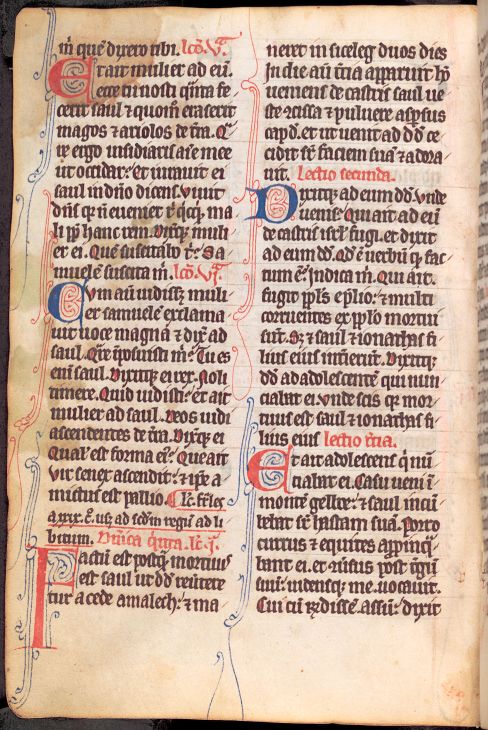 m̃ quē dixero tibi. lcō. Vᵃ.
Et ait mulier ad eū.
ecce tu nosti q̃nta fe
cerit saul ⁊ quom̃ eraserit
magos ⁊ ariolos de tr̃a. Q̃
re ergo insidiaris aĩe mee
ut occidar: Et iurauit ei
saul in dño dicens. Viuit
dñs qꝛ ñ eueniet t̃ q̃cq̃ ma
li ꝓp̃ hanc rem. Dixitqꝫ muli
er ei. Quē suscitabo t̃: Sa
muelē suscita m̃. lcō. Vĩᵃ.
Cum aũt uidissꝫ muli
er samuelē exclama
uit uoce magna ⁊ dix̃ ad
saul. Q̃re īposuisti m̃: Tu es
eni saul. Dixitqꝫ ei rex. Noli
timere. Quid uidisti: et ait
mulier ad saul. Deos uidi
ascendentes de tr̃a. Dixitqꝫ ei
Qualis est forma ei᷒: Que ait
Vir senex ascendit: ⁊ ip̃e a
mictus est pallio.
bitum. Dñica q̃nta. lc̄. j̃.
Factū est postq̃ mortuus
est saul ut dd̃ reuertere
tur a cede amalech: ⁊ ma
neret in siceleg duos dies
In die aũt tr̃ia apparuit hõ
ueniens de castris saul ue
ste scissa ⁊ puluere aspsus
capd̃. et ut uenit ad dd̃ ce
cidit sr̃ faciem suã ⁊ adora
uit. Lectio secunda.
Dixitqꝫ ad eum dd̃. Vnde
uenis: Qui ait ad eũ
de castris isrl̃ fugi. et dixit
ad eum dd̃. Qd̃ ē uerbū q̃ fac
tum ē: Indica m̃. Qui ait.
fugit pp̃ls ex p̃lio: ⁊ multi
corruentes ex pp̃lo mortui
sũt. Sꝫ ⁊ saul ⁊ ionathas fi
lius eius intierũt. Dixitqꝫ
dd̃ ad adolescentē qui nun
ciabat ei. Vnde scis qꝛ mor
tuus est saul ⁊ ionathas fi
lius eius lectio tr̃ia.
Et ait adolescens q̃ nũ
ciabat ei. Casu ueni ĩ
montē gelboe: ⁊ saul incũ
bebat sr̃ hastam suã. Porro
currus ⁊ equites appinq̃
bant ei. et rursus post t̃gũ
suũ: uidensqꝫ me uocauit.
Cui cũ r̃ndissē. assũ: dixit